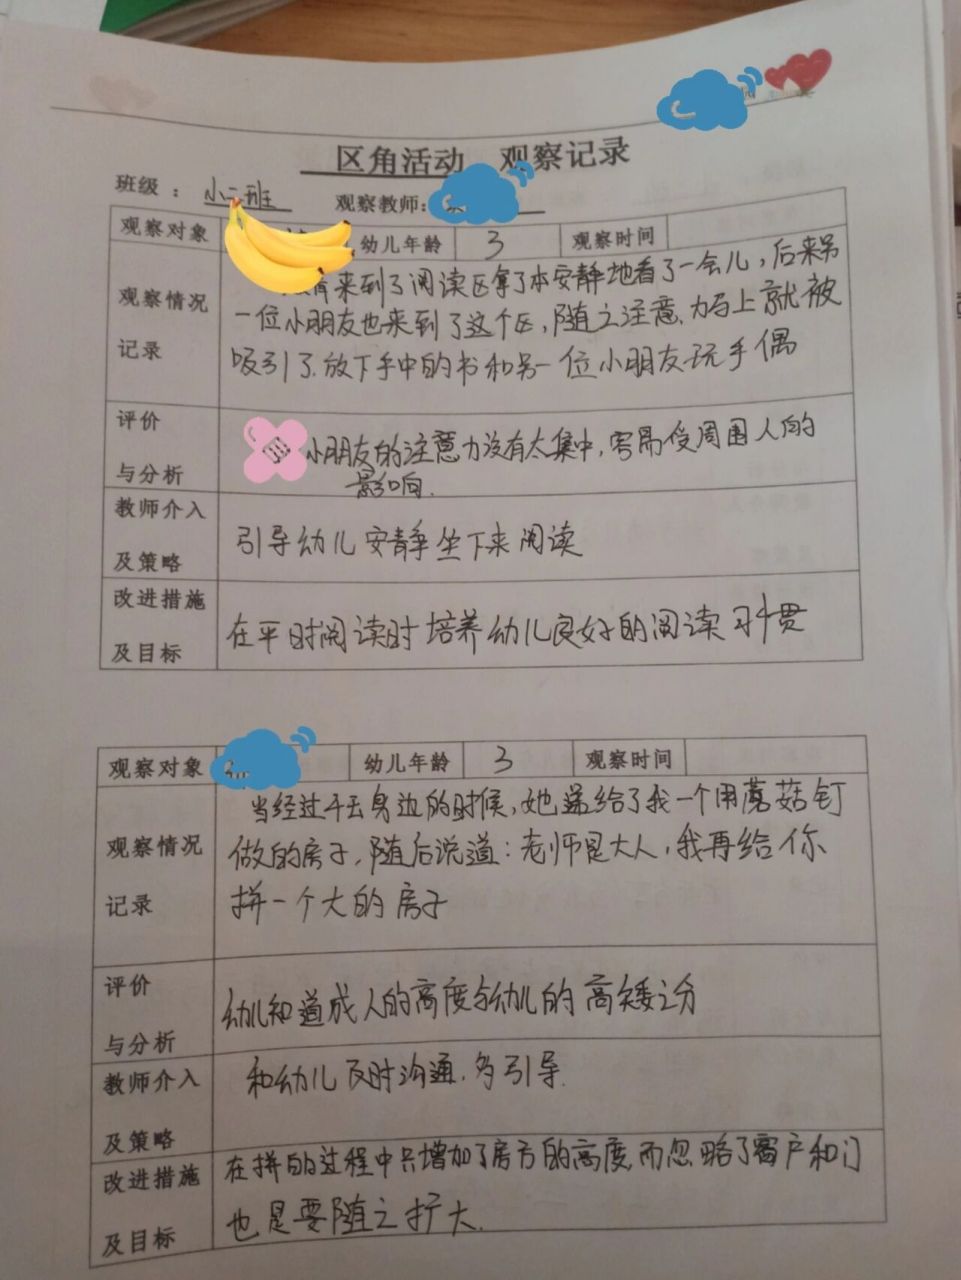 区角活动 观察记录
班级： 小二班 观察教师：
观察对象 幼儿年龄 3 观察时间
观察情况
记录
来到了阅读区拿了本安静地看了一会儿，后来另
一位小朋友也来到了这个区，随之注意力马上就被
吸引了.放下手中的书和另一位小朋友玩手偶
评价
与分析
小朋友的注意力没有太集中，容易受周围人的
影响.
教师介入
及策略
引导幼儿安静坐下来阅读
改进措施
及目标
在平时阅读时培养幼儿良好的阅读习惯
观察对象 幼儿年龄 3 观察时间
观察情况
记录
当经过 身边的时候，她递给了我一个用蘑菇钉
做的房子，随后说道：老师是大人，我再给你
拼一个大的房子
评价
与分析
幼儿知道成人的高度与幼儿的高矮之分
教师介入
及策略
和幼儿及时沟通.多引导.
改进措施
及目标
在拼的过程中只增加了房方的高度而忽略了窗户和门
也是要随之扩大.